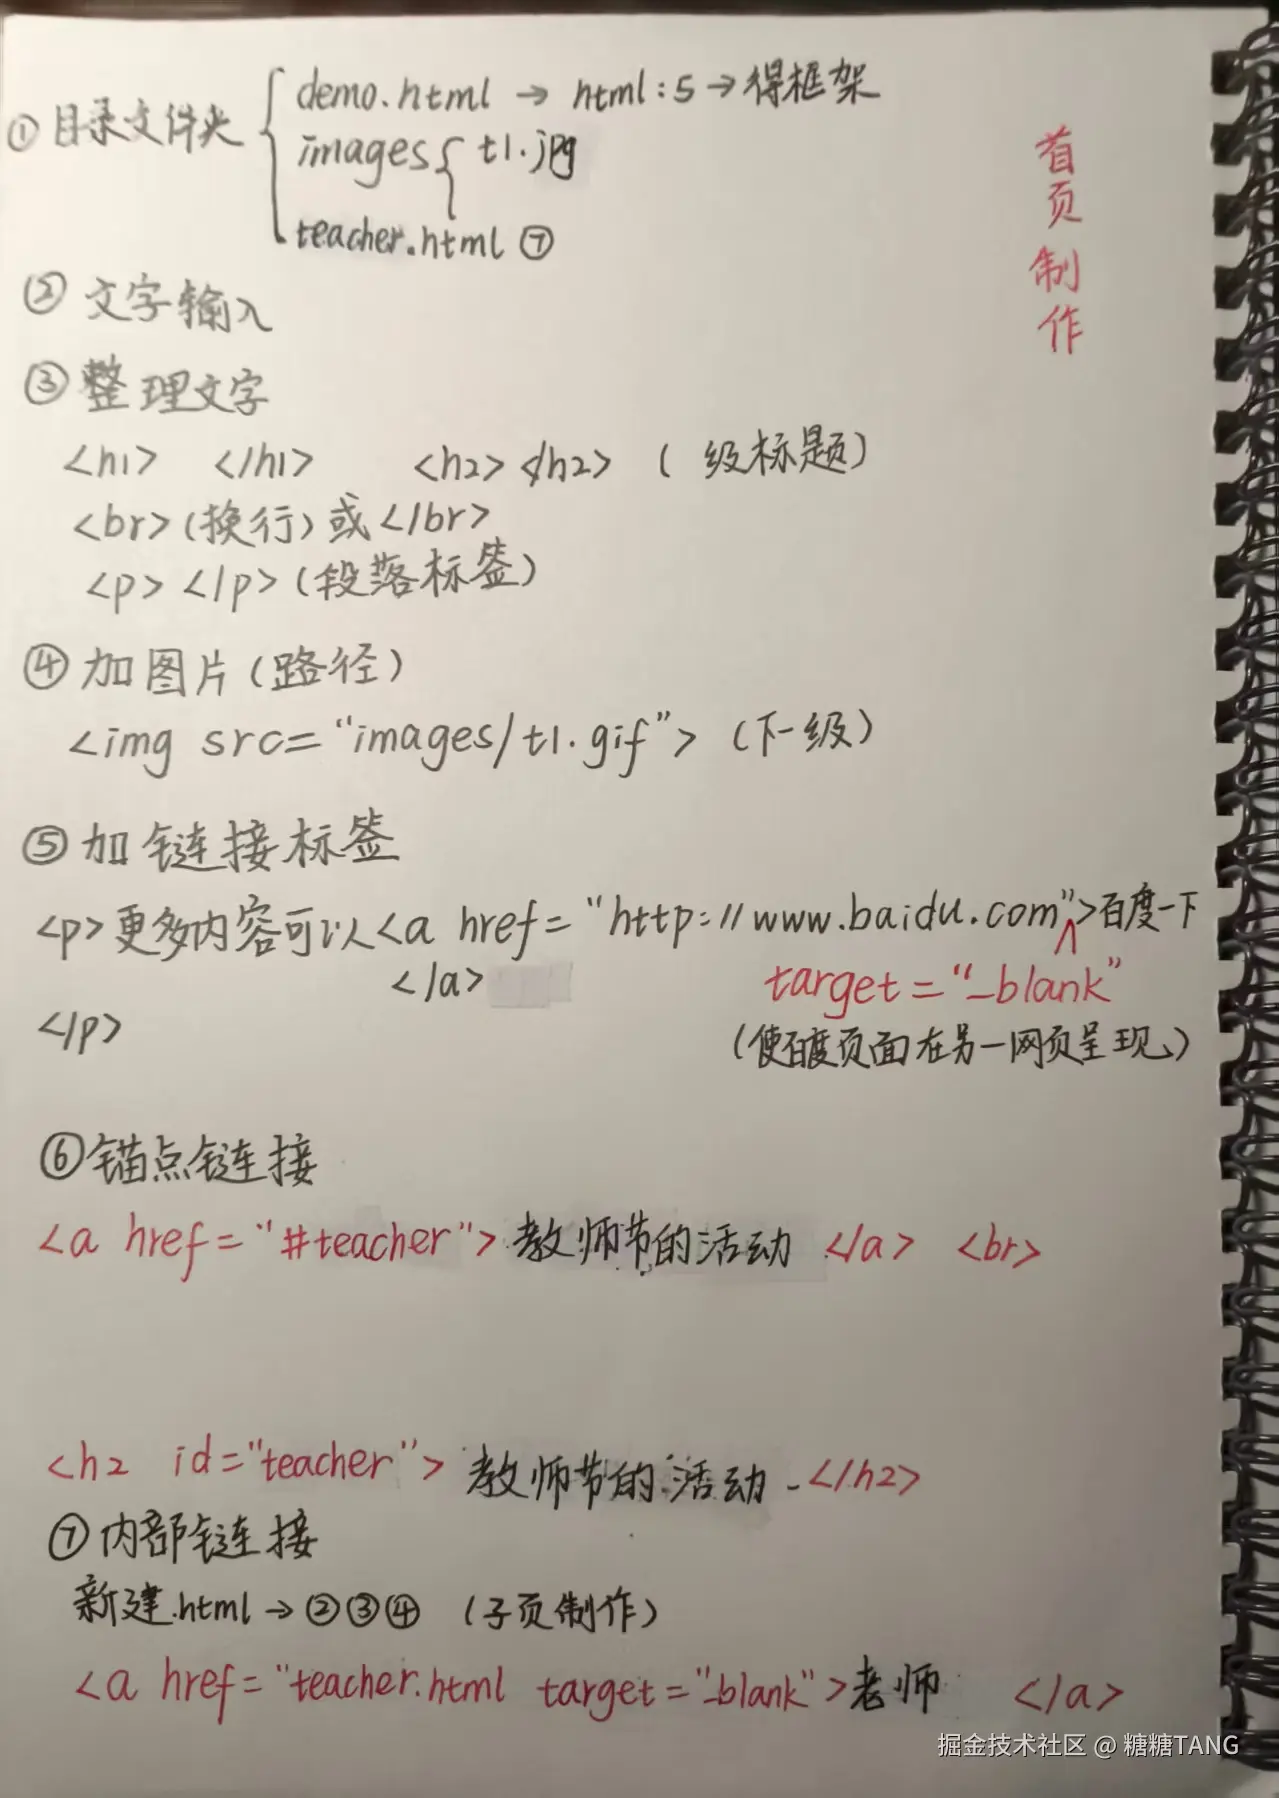 首页制作
①目录文件夹 { demo.html → html:5 → 得框架
images { t1.jpg
teacher.html ⑦
② 文字输入
③ 整理文字
<h1> </h1> <h2> </h2> ( 级标题)
<br>(换行)或</br>
<p> </p>(段落标签)
④ 加图片(路径)
<img src="images/t1.gif"> (下一级)
⑤ 加链接标签
<p>更多内容可以<a href="http://www.baidu.com">百度一下
</a>
target="_blank"
</p>
(使百度页面在另一网页呈现)
⑥锚点链接
<a href="#teacher">教师节的活动 </a> <br>
<h2 id="teacher"> 教师节的活动 </h2>
⑦内部链接
新建.html→②③④ (子页制作)
<a href="teacher.html target="_blank">老师 </a>
掘金技术社区 @ 糖糖TANG